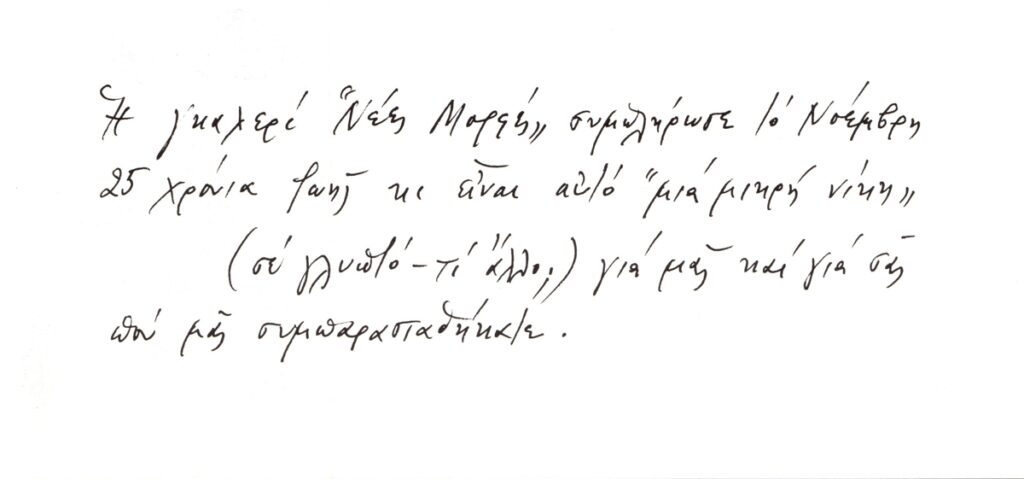 Ἡ γκαλερί "Νέες Μορφές„ συμπλήρωσε τό Νοέμβρη
25 χρόνια ζωῆς κι εἶναι αὐτό "μιά μικρή νίκη„
(σέ γλυπτό – τί ἄλλο;) γιά μᾶς καί γιά σᾶς
πού μᾶς συμπαρασταθήκατε.